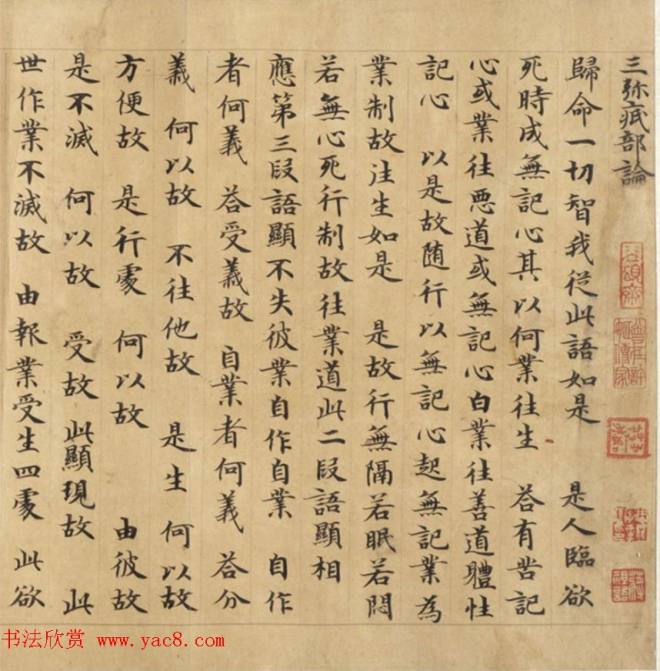 三弥底部論
歸命一切智我従此語如是 是人臨欲
死時成無記心其以何業往生 荅有苦記
心或業往悪道或無記心白業往善道體性
記心 以是故随行以無記心起無記業為
業制故注生如是 是故行無隔若眠若悶
若無心死行制故往業道此二段語顯相
應第三段語顯不失彼業自作自業 自作
者何義 荅受義故 自業者何義 荅分
義 何以故 不往他故 是生 何以故
方便故 是行處 何以故 由彼故
是不滅 何以故 受故 此顯現故 此
世作業不滅故 由報業受生四處 此欲
书法欣赏 www.yac8.com